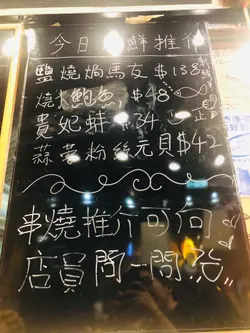 今日海鮮推介
鹽燒焗馬友$138
燒大鮑魚$48
貴妃蚌$34
蒜蓉粉絲元貝$42
串燒推介可向
店員問一問